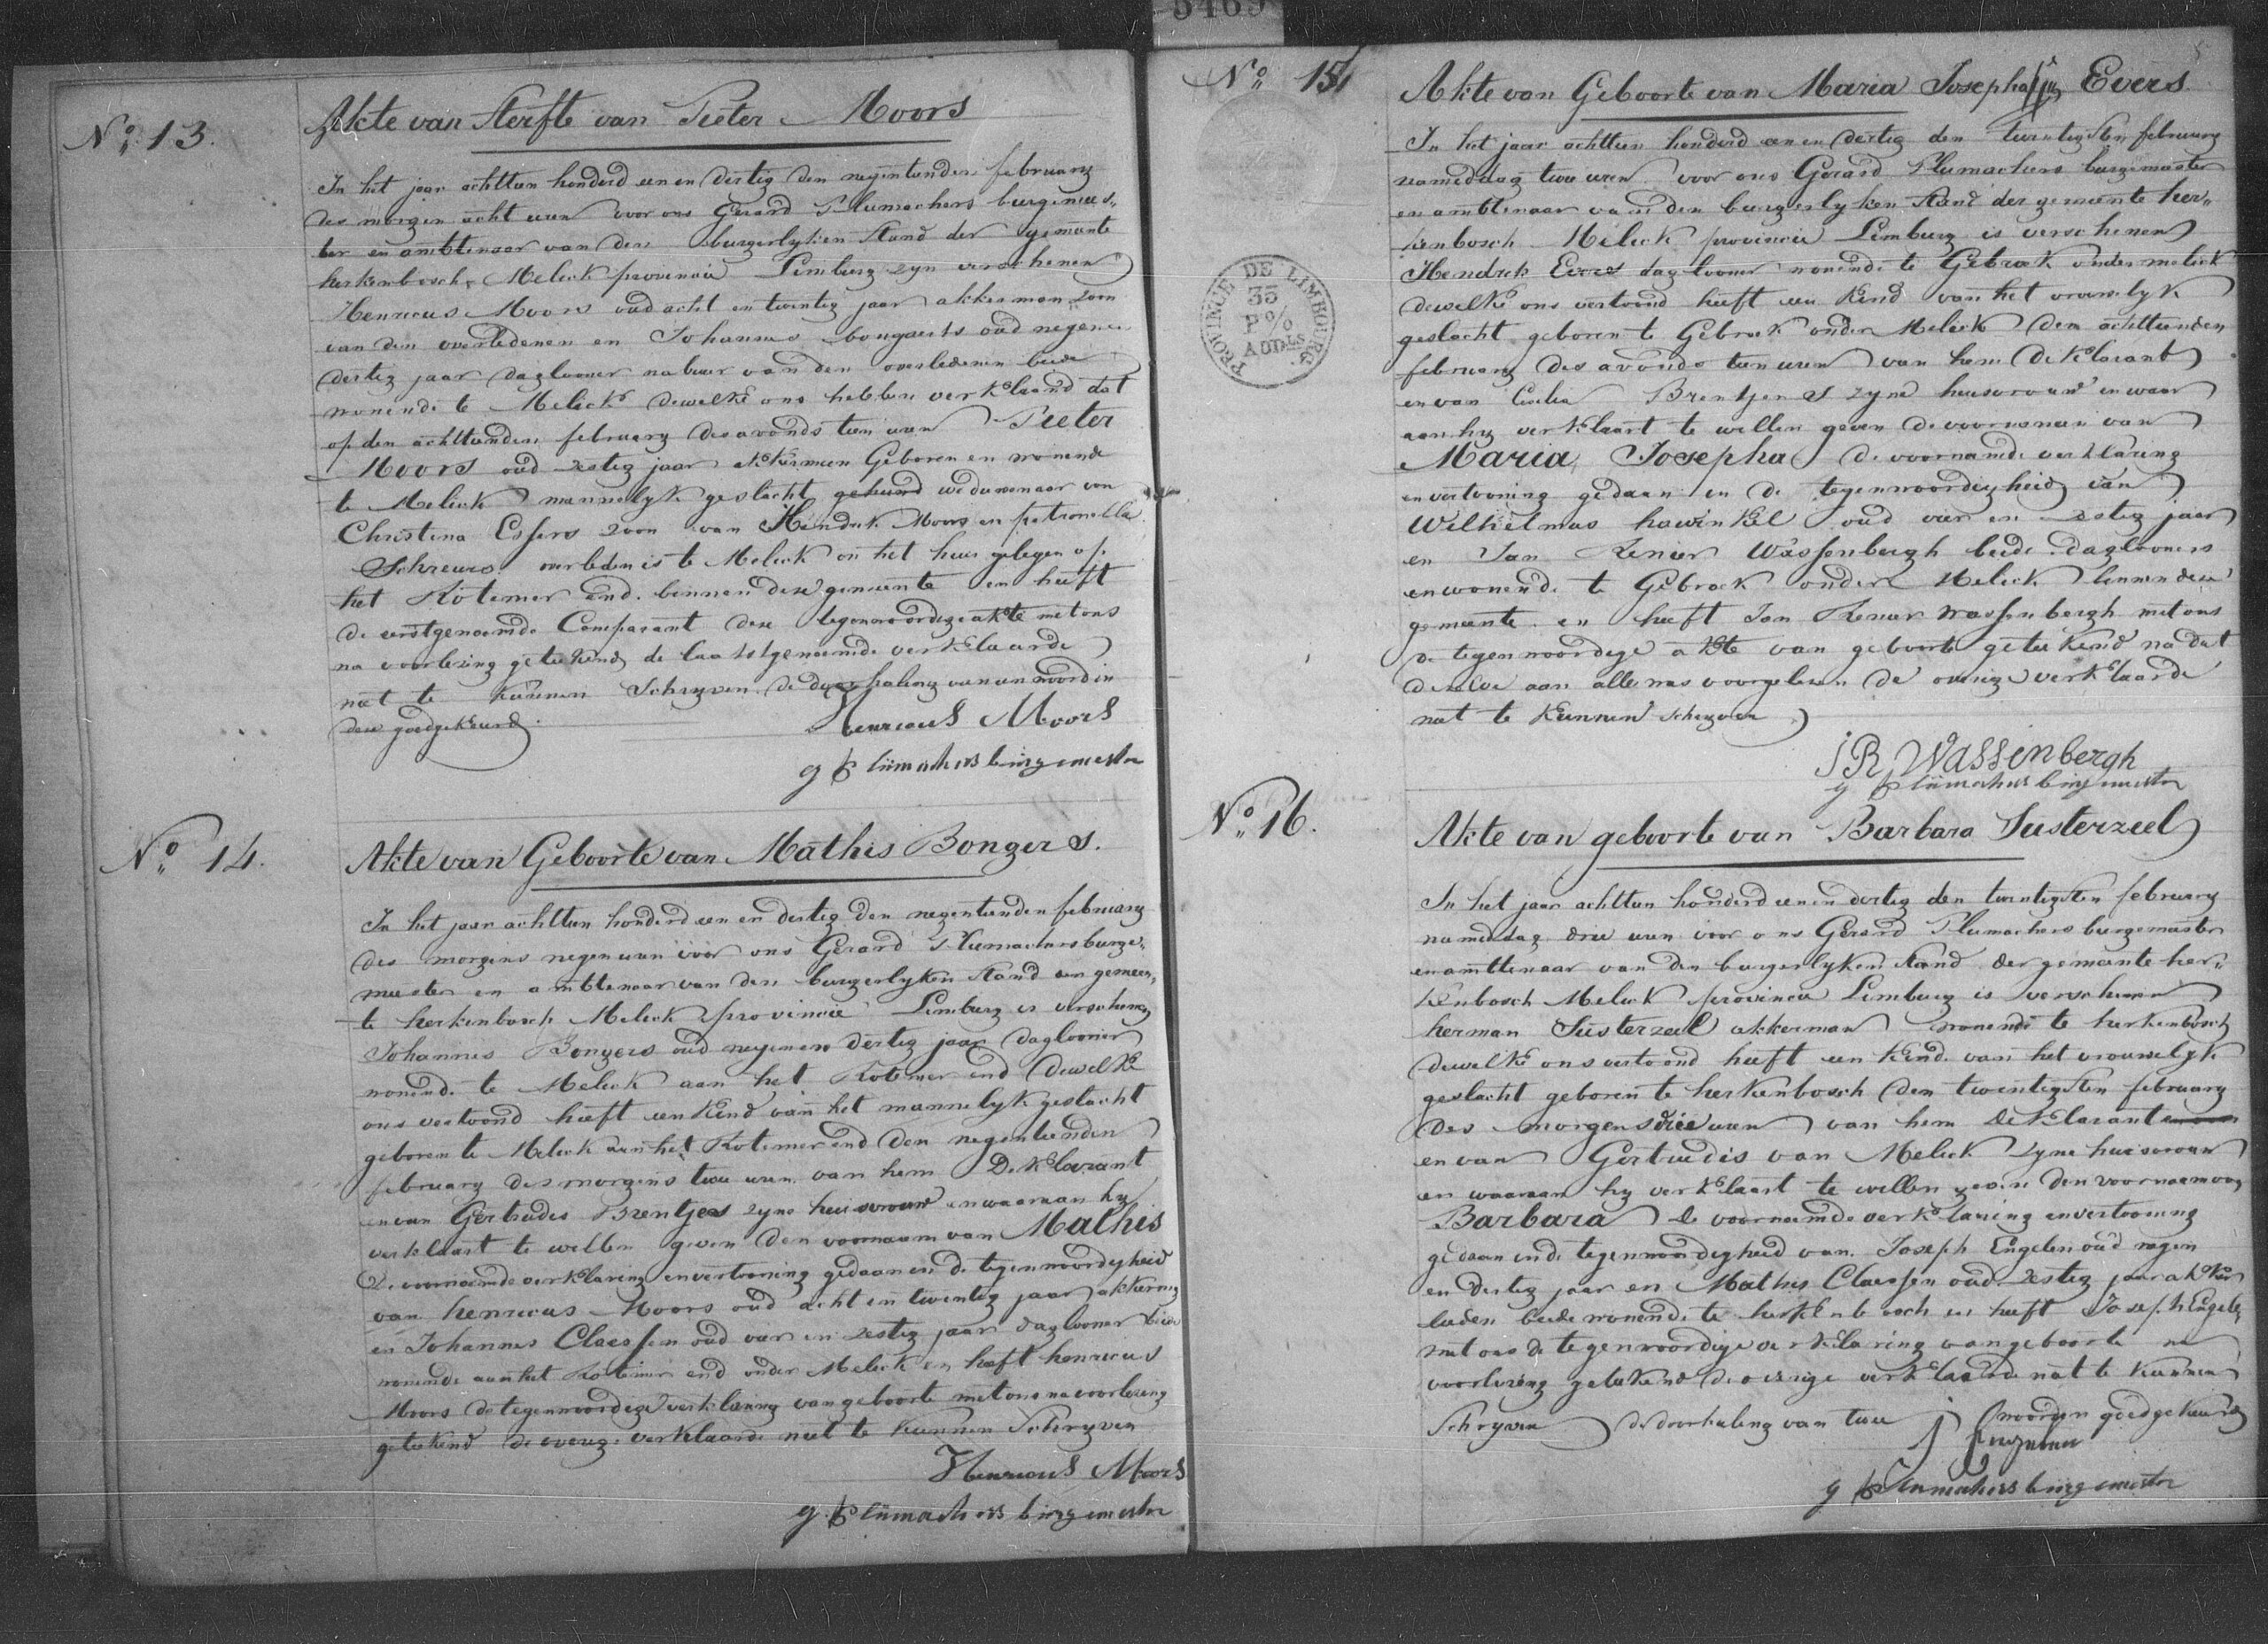 5469
No. 13.
Akte van Sterfte van Pieter Moors
In het jaar achttien honderd een en dertig den negentienden february
des morgen acht uren voor ons Gerard Plumachers burgemees„
ter en ambtenaar van den burgerlyken Stand der gemeente
herkenbosch Melick provincie Limburg zyn verschenen
Henricus Moors oud acht en twentig jaar akkerman zoon
van den overledenen en Johannes bongaerts oud negen en
dertig jaar daglooner nabuer van den overledenen beide
wonende te Melick dewelke ons hebben verklaard dat
op den achttienden february des avonds tien uren Pieter
Moors oud zestig jaar akkerman Geboren en wonende
te Melick mannelyk geslacht gehuwd weduwenaar van
Christina Essers zoon van Hendrik Moors en petronella
Schreurs overleden is te Melick in het huis gelegen op
het Rötemer end binnen deze gemeente en heeft
de eerstgenoemde Comparant deze tegenwoordige akte met ons
na voorlezing geteekend de laatstgenoemde verklaarde
niet te kunnen Schryven de doorhaling van een woord in
deze goedgekeurd
Henricus Moors
g Plümachers burgemester
No. 14.
Akte van Geboorte van Mathis Bongers.
In het jaar achttien honderd een en dertig den negentienden february
des morgens negen uren voor ons Gerard Plumachers burge„
meester en ambtenaar van den burgerlyken Stand een gemeen„
te herkenbosch Melick provincie Limburg is verschenen
Johannes Bongers oud negen en dertig jaar daglooner
wonende te Melick aan het Rotemer end dewelke
ons vertoond heeft een Kind van het mannelyk geslacht
geboren te Melick aan het Rotemer end den negentienden
february des morgens twee uren van hem Deklarant
en van Gertrudes Brentjes zyne huisvrouw en waaraan hy
verklaart te willen geven den voornaam van Mathis
De voornoemde verklaring en vertooning gedaan in de tegenwoordigheid
van henricus Moors oud acht en twintig jaar akkerman
en Johannes Claessen oud vier en zestig jaar daglooner beide
wonende aan het Rotemer end onder Melick en heeft henricus
Moors de tegenwoordige verklaring van geboorte met ons na voorlezing
geteekend de overige verklaarde niet te kunnen Schryven
Henricus Moors
g Plümachers burgemester
No. 15
5
Akte van Geboorte van Maria Josepha Evers
In het jaar achttien honderd een en dertig den twintigsten february
namiddag twee uren voor ons Gerard Plumachers burgemaster
en ambtenaar van den burgerlyken Stand der gemeente her„
kenbosch Melick provincie Limburg is verschenen
Hendrik Evers daglooner wonende te Gebroek onder melick
dewelke ons vertoond heeft een Kind van het vrouwelyk
geslacht geboren te Gebroek onder Melick den achttienden
february des avonds tien uren van hem Deklarant
en van Cecilia Brentjens zyne huisvrouw en waar
aan hy verklaart te willen geven de voornamen van
Maria Josepha de voornamde verklaring
en vertooning gedaan in de tegenwoordigheid van
Wilhelmus hawinkel oud vier en zestig jaar
en Jan Renier Wassenbergh beide daglooners
en wonende te Gebroek onder Melick binnen deze
gemeente en heeft Jan Renier Wassenbergh met ons
de tegenwoordige akte van geboorte geteekend na dat
dezelve aan alle was voorgelesen de overige verklaarde
niet te Kunnen schryven
J R Wassenbergh
g Plümachers burgemester
PROVINCE DE LIMBOURG.
35
P%
ADD.LS
No. 16.
Akte van geboorte van Barbara Susterzeel
In het jaar achttien honderd een en dertig den twintigsten february
namiddag drie uren voor ons Gerard Plumachers burgemaster
en amttenaar van den burgerlyken Stand der gemeente her„
kenbosch Melick provincie Limburg is verschenen
herman Susterzeel akkerman wonende te herkenbosch
dewelke ons vertoond heeft een Kind van het vrouwelyk
geslacht geboren te herkenbosch den twentigsten february
des morgens drie uren van hem deklarant
en van Gertrudis van Melick zyne huisvrouw
en waaraan hy verklaart te willen geven den voornaam van
Barbara de voornamde verklaring en vertooning
gedaan in de tegenwoordigheid van Joseph Engelen oud negen
en dertig jaar en Mathis Claessen oud zestig jaar akker
lieden beide wonende te herkenbosch en heeft Joseph Engele
met ons de tegenwoordige verklaring van geboorte na
voorlezing geteekend de overige verklaarde niet te kunnen
Schryven de doorhaling van twee woorden goedgekeurd
J Engelen
g Plumachers burgemester